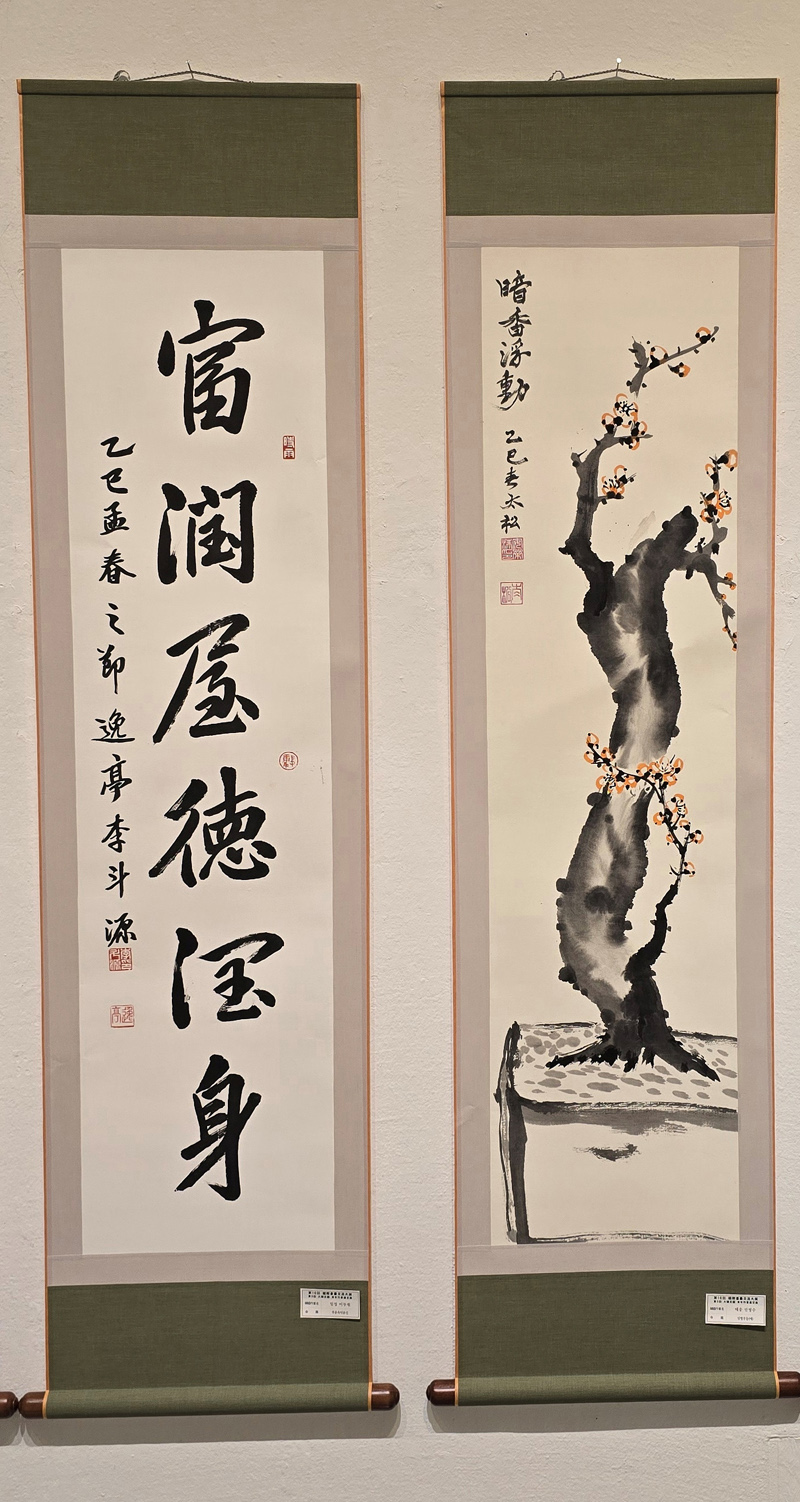 富潤屋德潤身
乙巳孟春之節 逸亭 李斗源
暗香浮動
乙巳春 太松